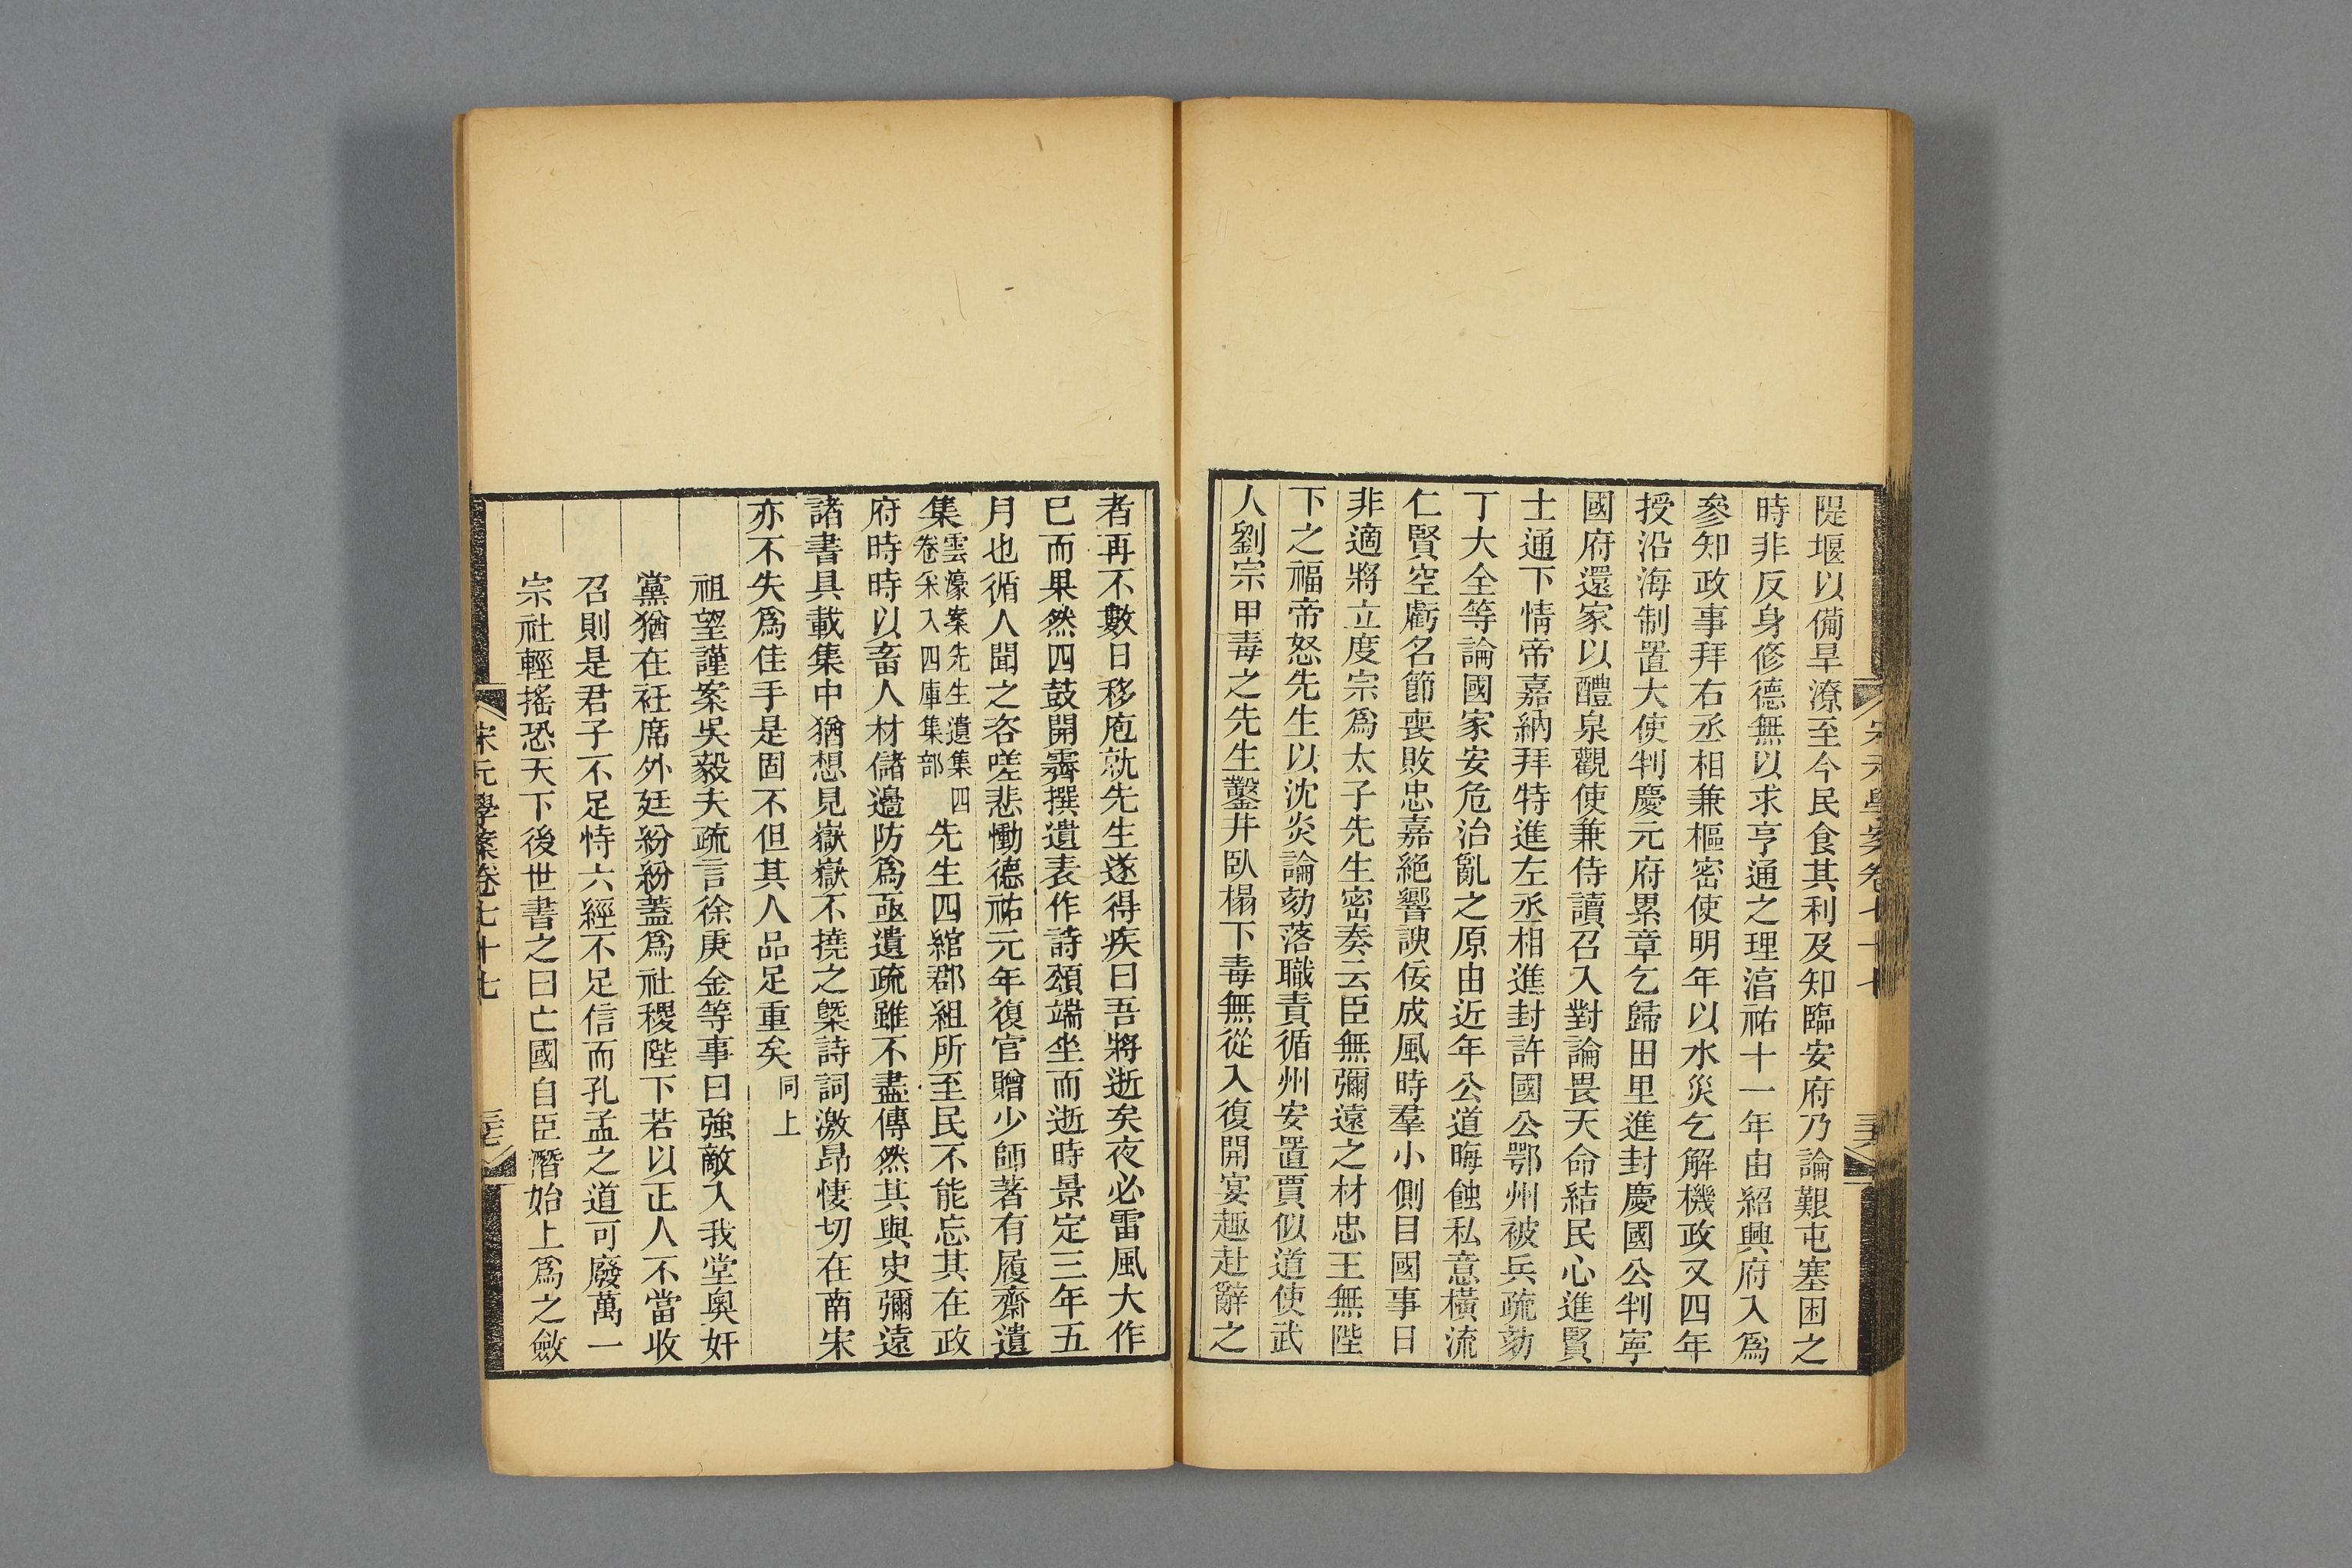 隄堰以備旱潦至今民食其利及知臨安府乃論艱屯蹇困之
時非反身修德無以求亨通之理湻祐十一年由紹興府入爲
參知政事拜右丞相兼樞密使明年以水災乞解機政又四年
授沿海制置大使判慶元府累章乞歸田里進封慶國公判寧
國府還家以醴泉觀使兼侍讀召入對論畏天命結民心進賢
士通下情帝嘉納拜特進左丞相進封許國公鄂州被兵疏劾
丁大全等論國家安危治亂之原由近年公道晦蝕私意橫流
仁賢空虛名節喪敗忠嘉絕響諛佞成風時羣小側目國事日
非適將立度宗爲太子先生密奏云臣無彌遠之材忠王無陛
下之福帝怒先生以沈炎論劾落職責循州安置賈似道使武
人劉宗申毒之先生鑿井臥榻下毒無從入復開宴趣赴辭之
宋元學案卷七十七
者再不數日移庖就先生遂得疾曰吾將逝矣夜必雷風大作
已而果然四鼓開霽撰遺表作詩頌端坐而逝時景定三年五
月也循人聞之咨嗟悲慟德祐元年復官贈少師著有履齋遺
集雲濠案先生遺集四卷采入四庫集部先生四綰郡組所至民不能忘其在政
府時時以畜人材儲邊防爲亟遺疏雖不盡傳然其與史彌遠
諸書具載集中猶想見嶽嶽不撓之槩詩詞激昂悽切在南宋
亦不失爲佳手是固不但其人品足重矣同上
祖望謹案吳毅夫疏言徐庚金等事曰強敵入我堂奧奸
黨猶在衽席外廷紛紛蓋爲社稷陛下若以正人不當收
召則是君子不足恃六經不足信而孔孟之道可廢萬一
宗社輕搖恐天下後世書之曰亡國自臣潛始上爲之斂
宋元學案卷七十七